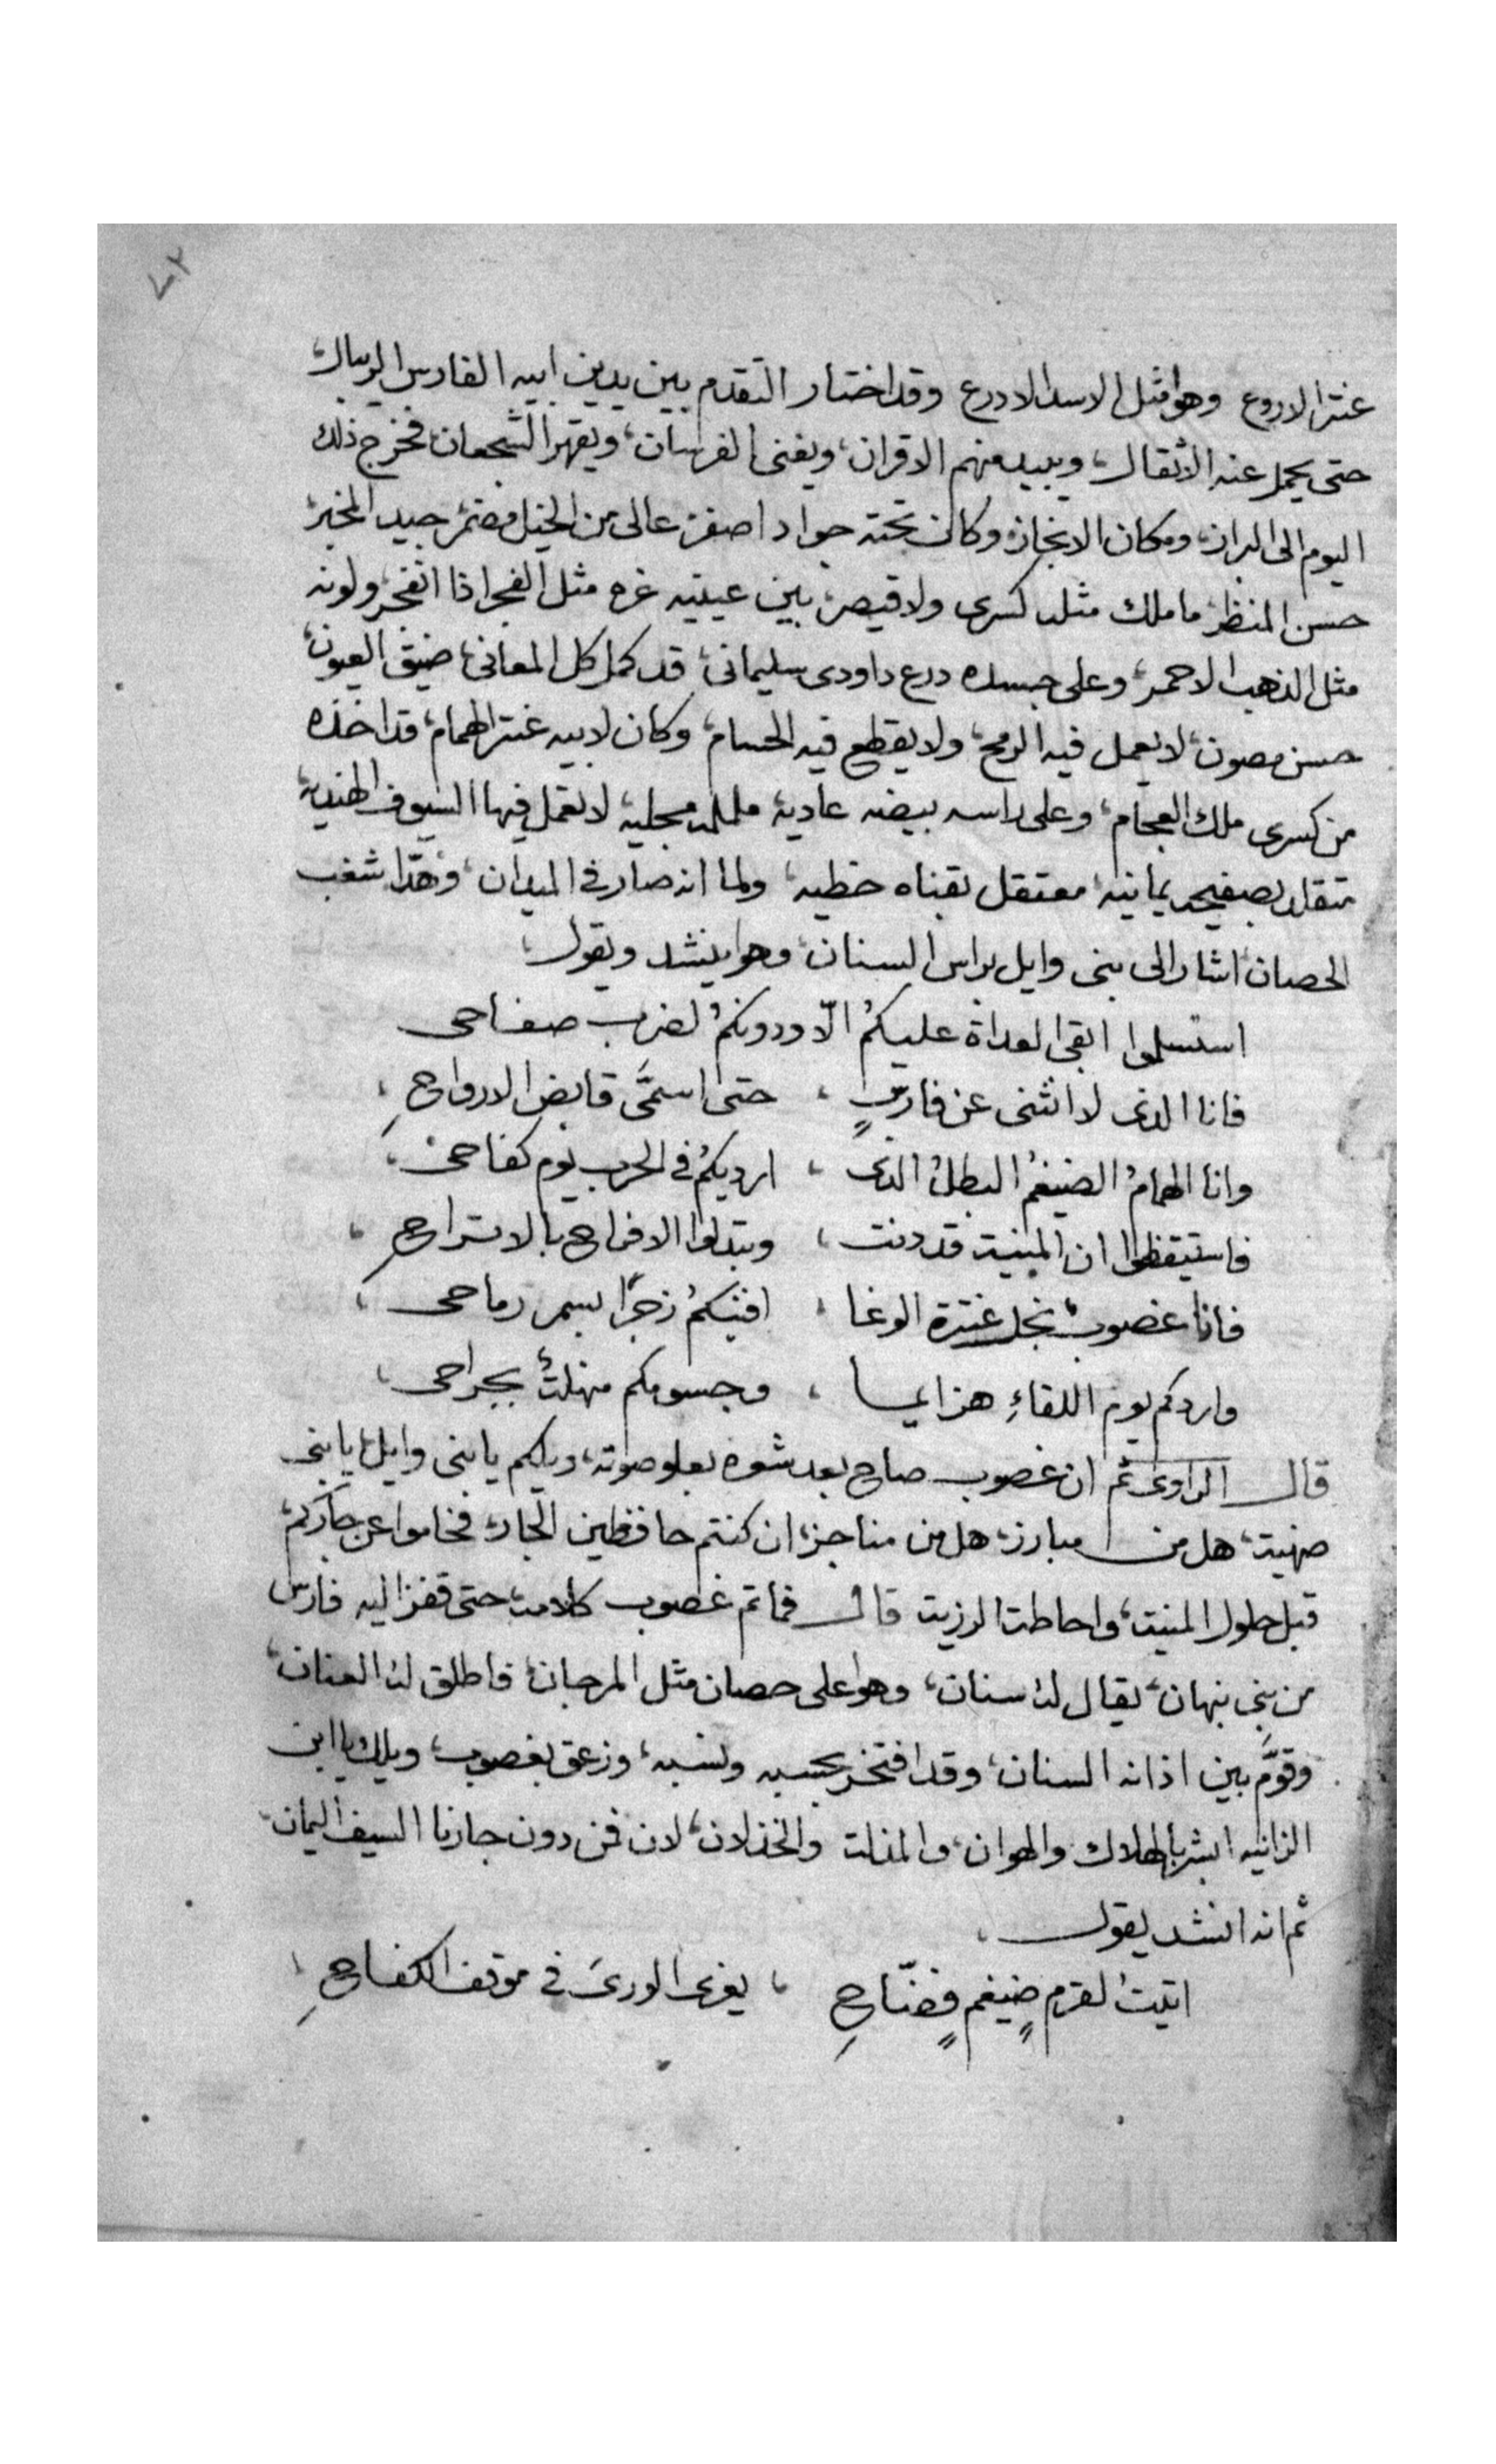 ٤٢
عنتر الاروع وهوا مثل الاسد الادرع وقد اختار التقدم بين يدين ابيه الفارس الريبال،
حتى يحمل عنه الاثقال، ويبيد منهم الاقران، ويفنى الفرسان، ويقهر الشجعان، فخرج ذلك
اليوم الى البراز، ومكان الانجاز، وكان تحته جواد اصفر عالى من الخيل مضمر جيد المخبر،
حسن المنظر، ما ملك مثله كسرى ولا قيصر، بين عينيه غره مثل الفجر اذا انفجر، ولونه
مثل الذهب الاحمر، وعلى جسده درع داودى سليمانى، قد كمل كل المعانى، ضيق العيون،
حسن مصون، لا يعمل فيه الرمح، ولا يقطع فيه الحسام، وكان لابيه عنتر الهمام، قد اخذه
من كسرى ملك العجام، وعلى راسه بيضه عادية مجلية، لا تعمل فيها السيوف الهندية،
متقلد بصفيحه يمانيه، معتقل بقناه خطيه، ولما انه صار فى الميدان، وهدّا شغب
الحصان، اشار الى بنى وايل براس السنان، وهوا ينشد ويقول،
استسلموا ابقى لعداة عليكمُ الّا ودونكمُ لضرب صفاحى
فانا الذى لا انثنى عن فارسٍ ، حتى اسمَّى قابض الارواحِ ،
وانا الهمامُ الضيغمُ البطلُ الذى ، ارديكمُ فى الحرب يوم كفاحى ،
فاستيقظوا ان المنية قد دنت ، وبتدلوا الافراح بالاتراحِ ،
فانا غضوبٌ نجل عنترة الوغا ، افنيكمُ زجرًا بسمر رماحى ،
واردكم يوم اللقاءِ هزايما ، وجسومكم منهلةٌ بجراحى ،
قال الراوى ثم ان غضوب صاح بعد شعره بعلو صوته، ويلكم يا بنى وايل، يا بنى
صهية، هل من مبارز، هل من مناجز، ان كنتم حافظين الجار، فحاموا عن جاركم،
قبل حلول المنية، واحاطة الرزية قال فما تم غضوب كلامه، حتى قفز اليه فارس
من بنى نبهان، يقال له سنان، وهوا على حصان مثل المرجان، فاطلق له العنان،
وقوَّم بين اذانه السنان، وقد افتخر بحسبه ونسبه، وزعق بغضوب، ويلك يا ابن
الزانيه ابشر بالهلاك والهوان، والمذلة والخذلان، لان من دون جارنا السيف اليمان،
ثم انه انشد يقول ،
اتيت لقرمٍ ضيغمٍ فضّاحِ ، يغرى الورى فى موقف الكفاحِ ،